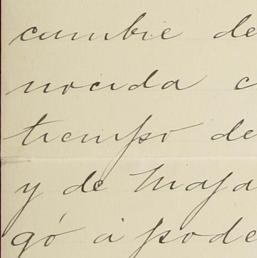 cambie de
nocida c
tiempo de
y de Maja
gó á pode